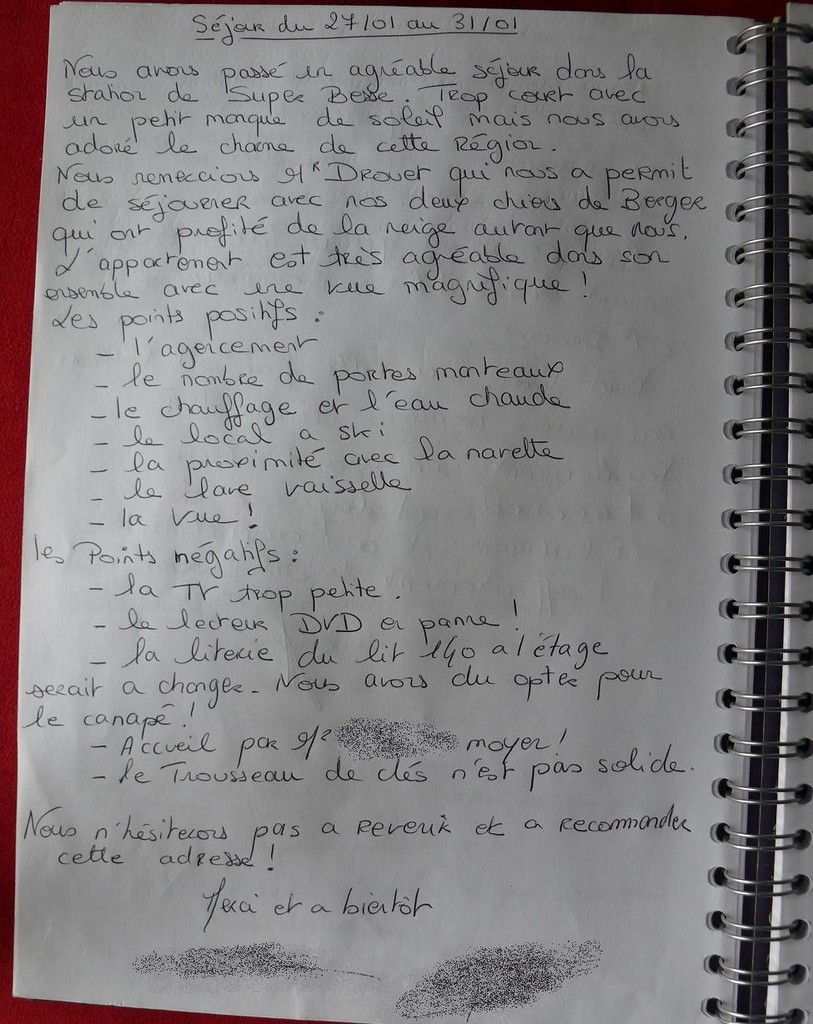 Séjour du 27/01 au 31/01
Nous avons passé un agréable séjour dans la
station de Super Besse. Trop court avec
un petit manque de soleil mais nous avons
adoré le charme de cette Région.
Nous remercions Mr Drouet qui nous a permit
de séjourner avec nos deux chiens de Berger
qui ont profité de la neige autant que nous.
L'appartement est très agréable dans son
ensemble avec une vue magnifique !
Les points positifs :
- l'agencement
- le nombre de portes manteaux
- le chauffage et l'eau chaude
- le local a ski
- la proximité avec la navette
- le lave vaisselle
- la vue !
les Points négatifs :
- la TV trop petite.
- le lecteur DVD en panne !
- la literie du lit 140 a l'étage
serait a changer. Nous avons du opter pour
le canapé !
- Accueil par Mr moyen !
- le Trousseau de clés n'est pas solide.
Nous n'hésiterons pas a revenir et a recommander
cette adresse !
Merci et a bientôt